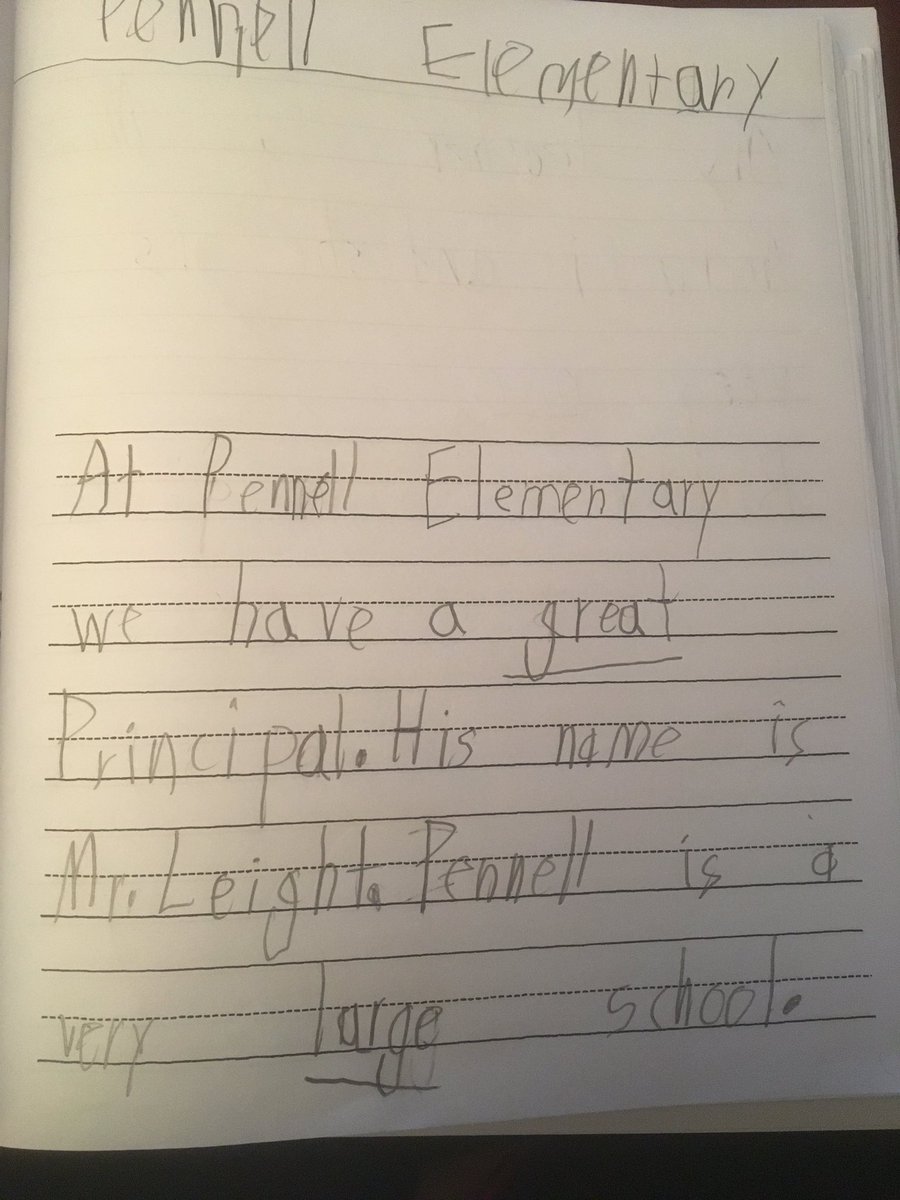 Pennell Elementary
At Pennell Elementary
we have a great
Principal. His name is
Mr. Leight. Pennell is a
very large school.